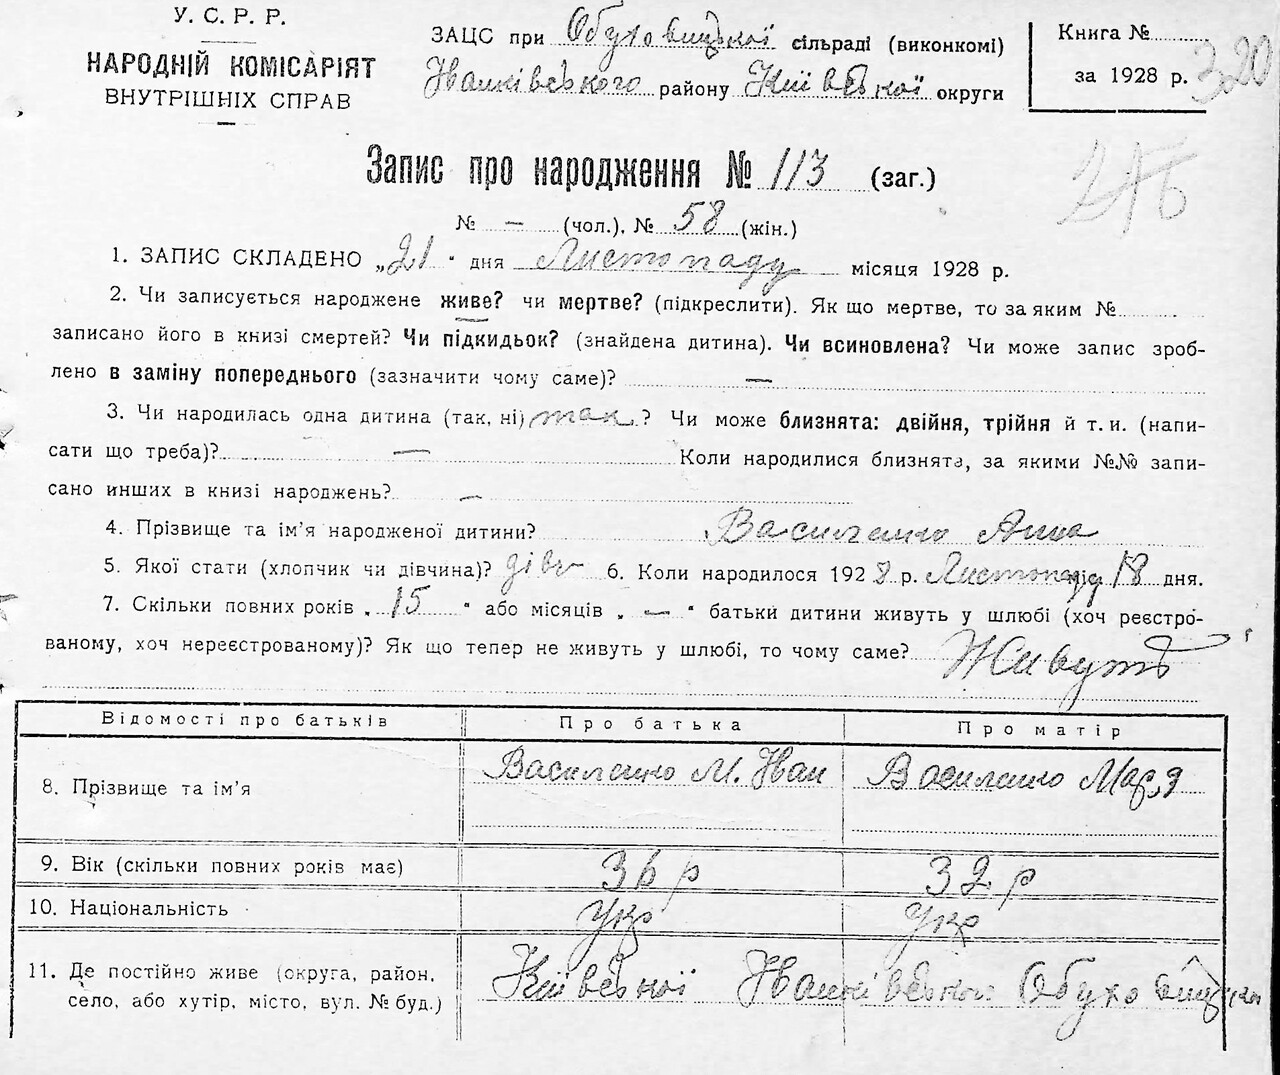 У. С. Р. Р.
НАРОДНІЙ КОМІСАРІЯТ
ВНУТРІШНІХ СПРАВ
ЗАЦС при Обуховицької сільраді (виконкомі)
Іванківського району Київської округи
Книга №
за 1928 р.
320
Запис про народження № 113 (заг.)
№ — (чол.), № 58 (жін.)
1. ЗАПИС СКЛАДЕНО „21" дня Листопаду місяця 1928 р.
2. Чи записується народжене живе? чи мертве? (підкреслити). Як що мертве, то за яким №
записано його в книзі смертей? Чи підкидьок? (знайдена дитина). Чи всиновлена? Чи може запис зроб-
лено в заміну попереднього (зазначити чому саме)? —
3. Чи народилась одна дитина (так, ні) так? Чи може близнята: двійня, трійня й т. и. (напи-
сати що треба)? — Коли народилися близнята, за якими №№ запи-
сано инших в книзі народжень? —
4. Прізвище та ім'я народженої дитини? Василенко Анна
5. Якої стати (хлопчик чи дівчина)? дівч 6. Коли народилося 1928 р. Листопаду 18 дня.
7. Скільки повних років „15" або місяців „—" батьки дитини живуть у шлюбі (хоч реєстро-
ваному, хоч нереєстрованому)? Як що тепер не живуть у шлюбі, то чому саме? Живуть
Відомості про батьків Про батька Про матір
8. Прізвище та ім'я Василенко М. Іван Василенко Марія
9. Вік (скільки повних років має) 36 р 32 р
10. Національність Укр Укр
11. Де постійно живе (округа, район,
село, або хутір, місто, вул. № буд.) Київської Іванківського